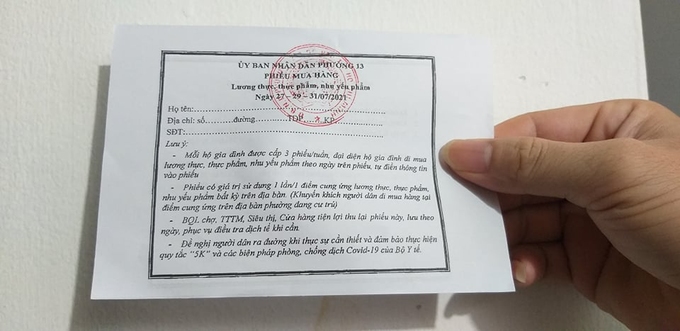 ỦY BAN NHÂN DÂN PHƯỜNG 13
PHIẾU MUA HÀNG
Lương thực, thực phẩm, nhu yếu phẩm
Ngày 27 - 29 - 31/07/2021
Họ tên:
Địa chỉ: số......đường..........TDP.....KP
SĐT:
Lưu ý:
- Mỗi hộ gia đình được cấp 3 phiếu/tuần, đại diện hộ gia đình đi mua
lương thực, thực phẩm, nhu yếu phẩm theo ngày trên phiếu, tự điền thông tin
vào phiếu
- Phiếu có giá trị sử dụng 1 lần/1 điểm cung ứng lương thực, thực phẩm,
nhu yếu phẩm bất kỳ trên địa bàn. (Khuyến khích người dân đi mua hàng tại
điểm cung ứng trên địa bàn phường đang cư trú)
- BQL chợ, TTTM, Siêu thị, Cửa hàng tiện lợi thu lại phiếu này, lưu theo
ngày, phục vụ điều tra dịch tễ khi cần.
- Đề nghị người dân ra đường khi thực sự cần thiết và đảm bảo thực hiện
quy tắc "5K" và các biện pháp phòng, chống dịch Covid-19 của Bộ Y tế.